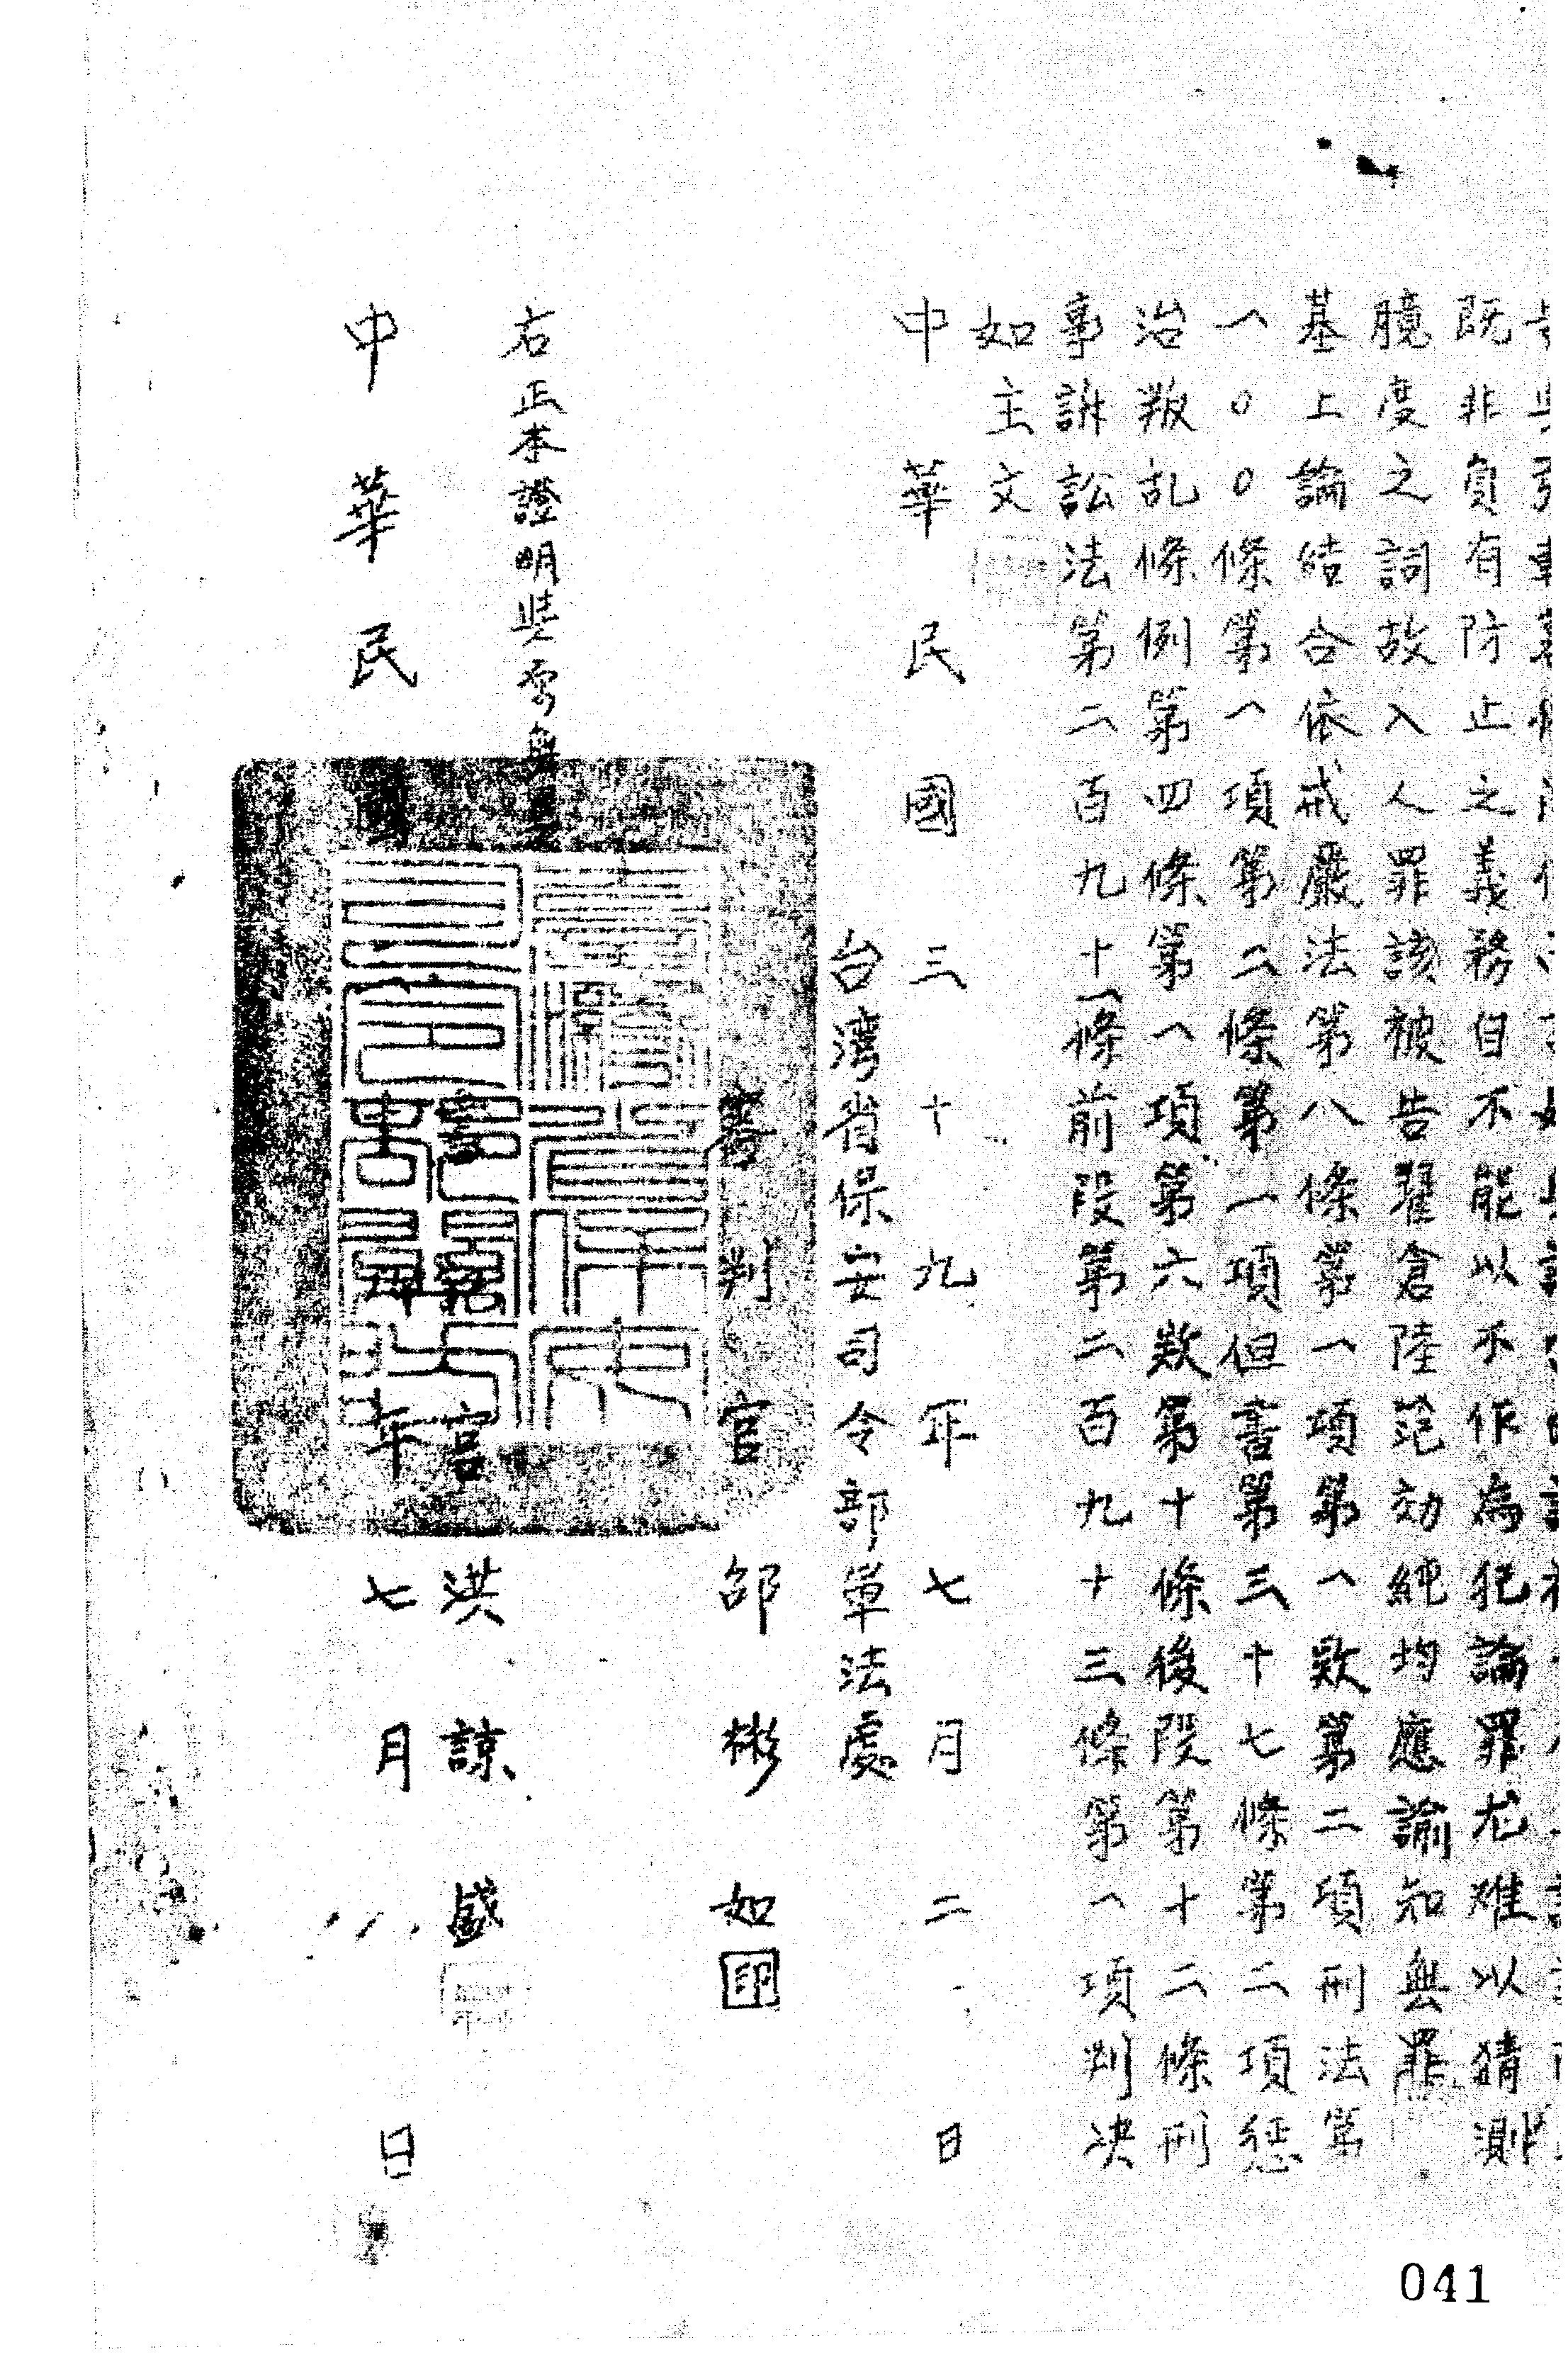 既非負有防止之義務自不能以不作為犯論罪尤难以猜測
臆度之詞故入人罪該被告翟倉陸范効純均應諭知無罪
基上論結合依戒嚴法第八條第一項第八款第二項刑法第
一〇〇條第一項第二條第一項但書第三十七條第二項惩
治叛乱條例第四條第一項第六款第十條後段第十二條刑
事訴訟法第二百九十一條前段第二百九十三條第一項判决
如主文
中華民國三十九年七月二日
台湾省保安司令部軍法處
審判官 邵彬如 印
右正本證明與原本無異
書記官 洪諒盛
中華民國 年七月 日
041